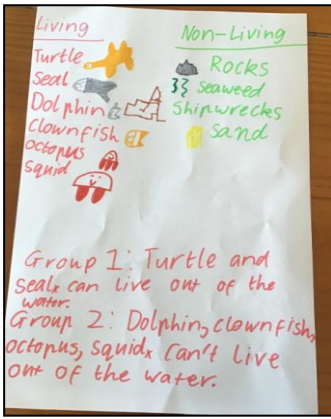 Living
Turtle
Seal
Dolphin
Clownfish
octopus
Squid
Non-Living
Rocks
seaweed
Shipwrecks
Sand
Group 1: Turtle and
seals can live out of the
water.
Group 2: Dolphin, clownfish,
octopus, squids can't live
out of the water.